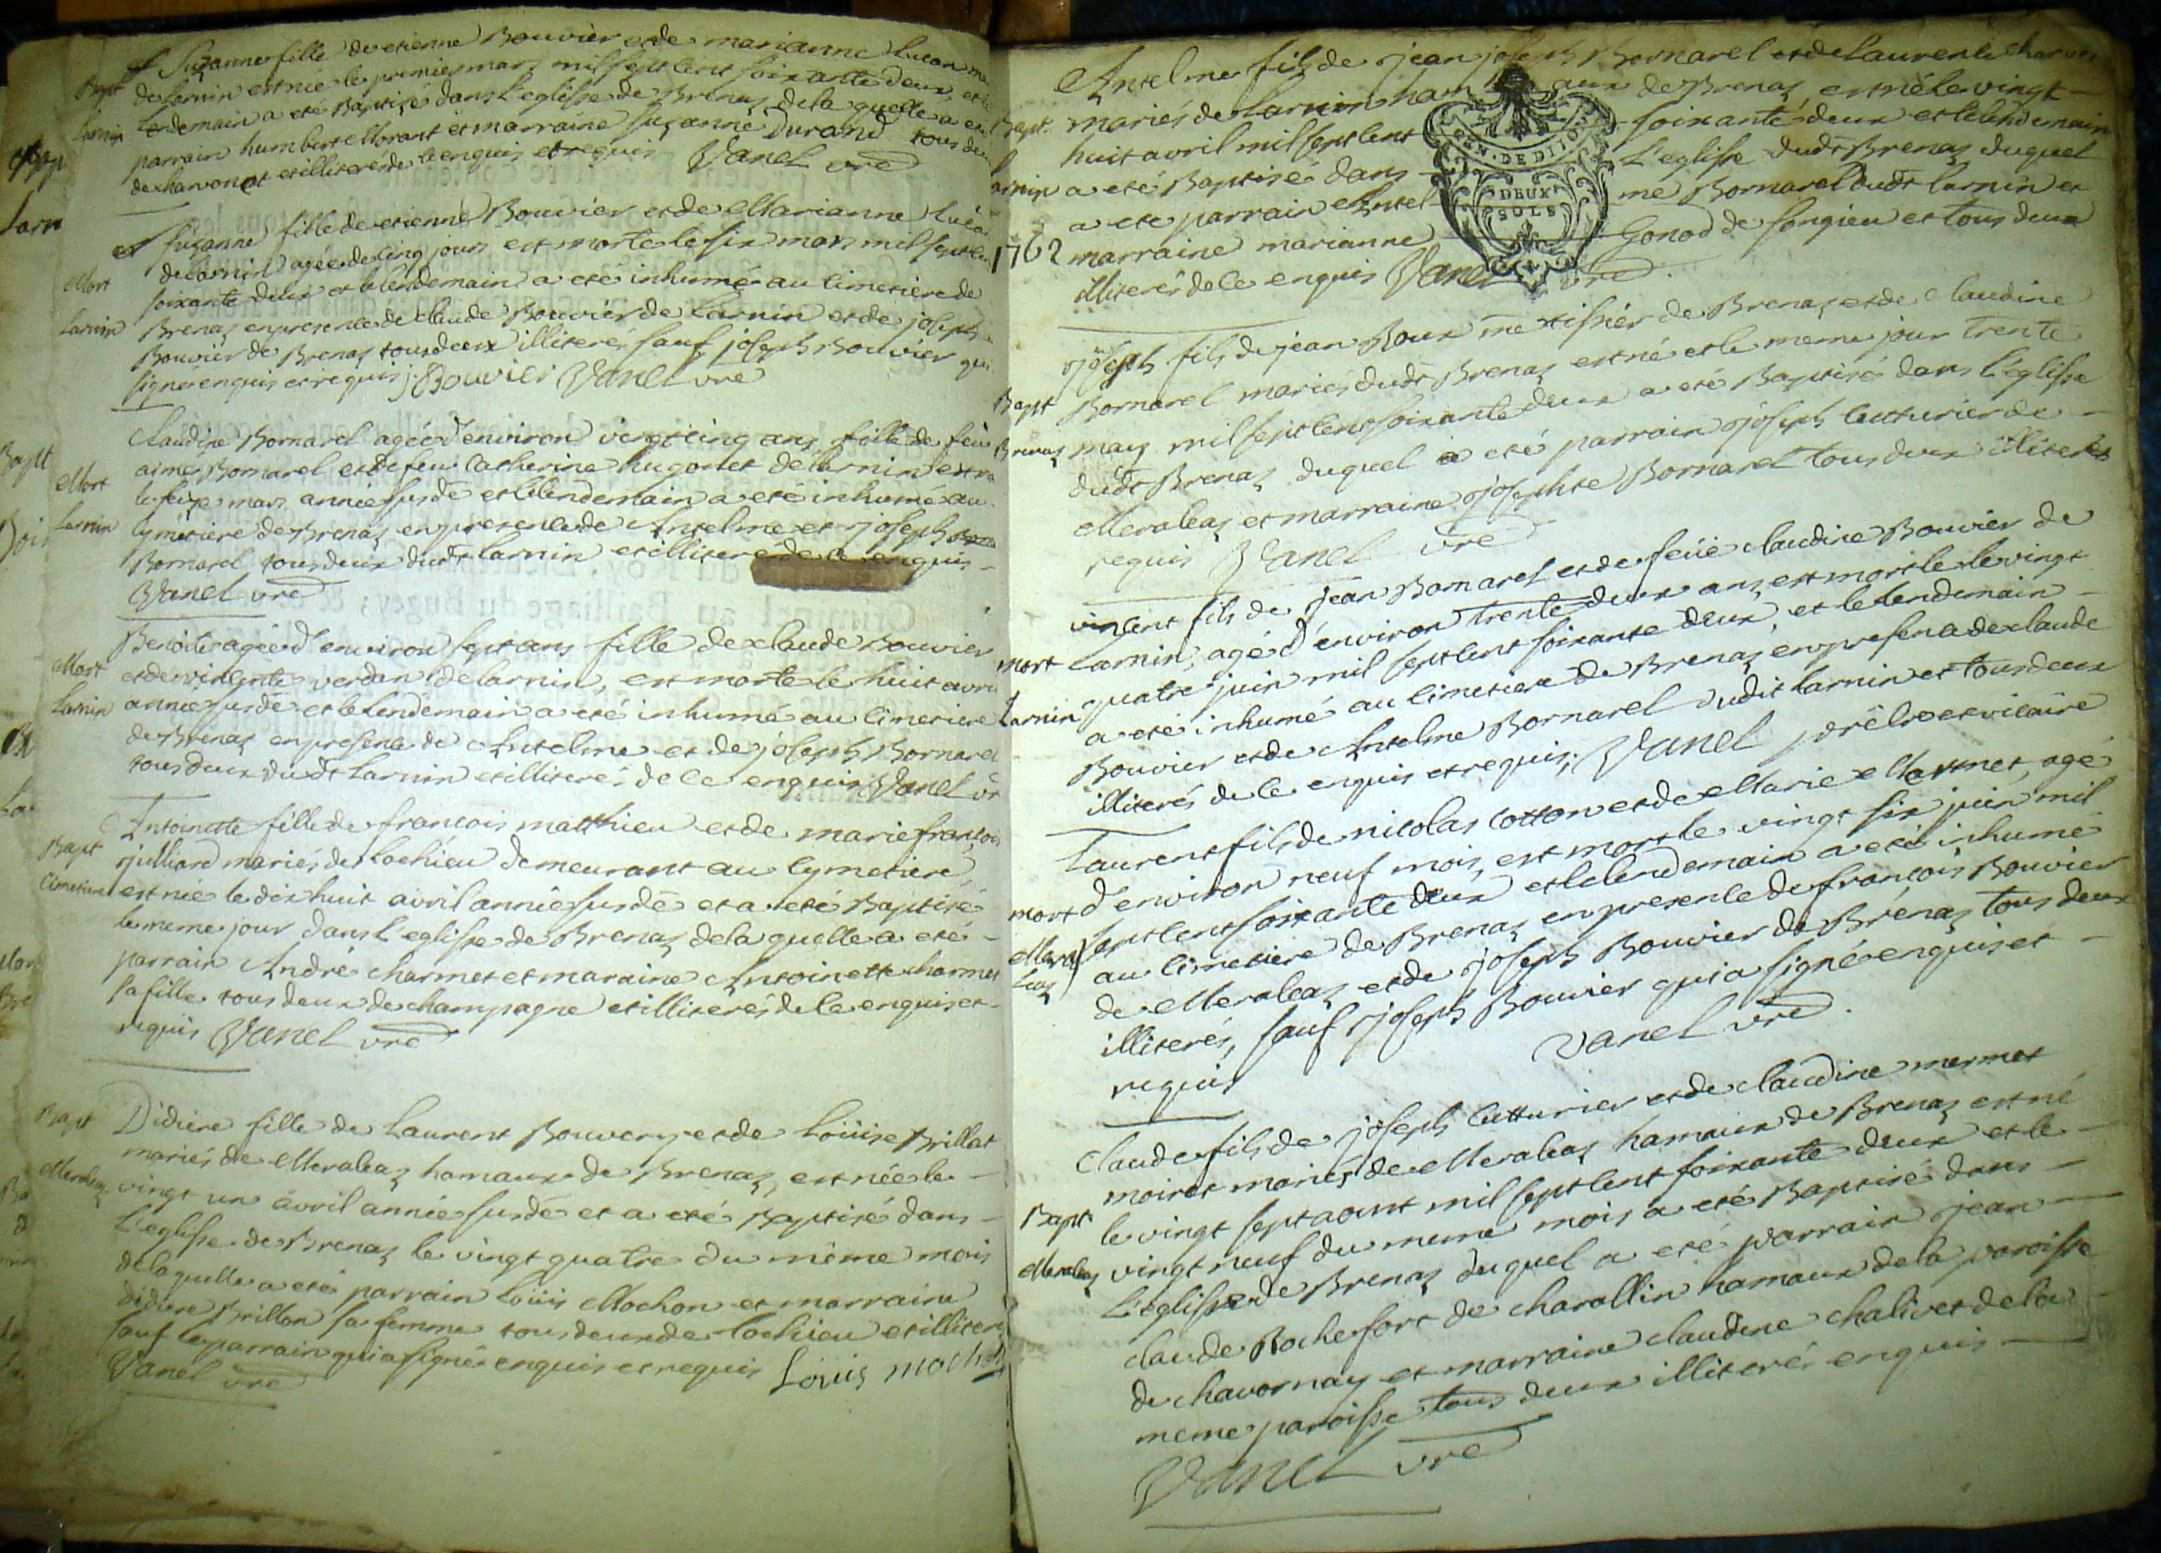 Bapt
Larnin
Suzanne fille de etienne Bouvier et de marianne Lucan
de Larnin est née le premier mars mil sept cent soixante deux, et le
lendemain a eté Baptisé dans l'eglisse de Brenaz de la quelle a eté
parrain humbert Morant et marraine suzanne Durand tous deux
de charvonot et illiterés de ce enquis et requis Vanel vre
Mort
Larnin
et suzanne fille de etienne Bouvier et de Marianne
de Larnin agée de cinq jours est morte le six mars mil sept cent
soixante deux et le lendemain a eté inhumé au cimetiere de
Brenaz en presence de claude Bouvier de Larnin et de joseph
Bouvier de Brenaz tous deux illiterés sauf joseph Bouvier qui
signé enquis et requis j: Bouvier Vanel vre
Mort
Larnin
Claudine Bornarel agée d'environ vingt cinq ans fille de feu
aimé Bornarel et de feu Catherine hugonet de Larnin est
le seize mars année susde et le lendemain a eté inhumé au
cymetiere de Brenaz en presence de Antelme et joseph
Bornarel tous deux dudt Larnin et illiterés de ce enquis
Vanel vre
Mort
Larnin
Benoite agée d'environ sept ans fille de claude Bouvier
et de vincente verdan de Larnin, est morte le huit avril
année susde et le lendemain a eté inhumé au cimetiere
de Brenaz en presence de Antelme et de joseph Bornarel
tous deux dudt Larnin et illiterés de ce enquis Vanel
Bapt
Cimetiere
Antoinette fille de francois matthieu et de marie francois
julliard mariés de Lochieu demeurant au cymetiere,
est née le dix huit avril année susde et a eté Baptisé
le meme jour dans L'eglisse de Brenaz de la quelle a eté
parrain André charmet et maraine Antoinette charmet
sa fille tous deux de champagne et illiterés de ce enquis et
requis Vanel vre
Bapt
Meraleaz
Didiere fille de Laurent Bouvery et de Loüise Brillat
mariés de Meraleaz hamaux de Brenaz, est née le
vingt un avril année susde et a eté Baptisé dans
L'eglisse de Brenaz le vingt quatre du même mois
de la quelle a eté parrain Loüis Mochon et marraine
didiere Brillan sa femme tous deux de Lochieu et illiterés
sauf le parrain qui a signé enquis et requis Loüis moch
Vanel vre
Bapt
Larnin
1762
Antelme fils de jean joseph Bornarel et de Laurente
mariés de Larnin ham aux de Brenaz est né le vingt
huit avril mil sept cent soixante deux et le lendemain
a eté Baptisé dans L'eglisse dudt Brenaz duquel
a ete parrain Antel me Bornarel dudt Larnin et
marraine marianne Gonod de songieu et tous deux
illiterés de ce enquis Vanel vre
GEN. DE DIJON
DEUX
SOLS
Bapt
Brenaz
joseph fils de jean Roux me tissier de Brenaz et de Claudine
Bornarel mariés dudt Brenaz est né et le meme jour trente
may mil sept cent soixante deux a eté Baptisé dans L'eglisse
dudt Brenaz duquel a eté parrain joseph Cutturier de
Meraleaz et marraine josephte Bornarel tous deux illiterés
requis Vanel vre
mort
Larnin
vincent fils de jean Bornarel et de feüe claudine Bouvier de
Larnin, agé d'environ trente deux ans, est mort le le vingt
quatre juin mil sept cent soixante deux, et le lendemain
a eté inhumé au cimetiere de Brenaz en presence de claude
Bouvier et de Antelme Bornarel dudit Larnin et tous deux
illiterés de ce enquis et requis, Vanel prêtre et vicaire
mort
Mera
leaz
Laurent fils de nicolas Cotton et de Marie Mermet, agé
d'environ neuf mois, est mort le vingt six juin mil
sept cent soixante deux et le lendemain a eté inhumé
au cimetiere de Brenaz en presence de francois Bouvier
de Meraleaz et de joseph Bouvier de Brénaz tous deux
illiterés, sauf joseph Bouvier qui a signé enquis et
requis Vanel vre.
Bapt
Meraleaz
Claude fils de joseph Cutturier et de claudine mermet
moiret mariés de Meraleaz hamaux de Brenaz est né
le vingt sept aout mil sept cent soixante deux et le
vingt neuf du meme mois a eté Baptisé dans
L'eglisse de Brenaz duquel a eté parrain jean
claude Rochefort de charallin hamaux de la paroisse
de chavornay et marraine claudine chalivet de la
meme paroisse tous deux illiterés enquis
Vanel vre